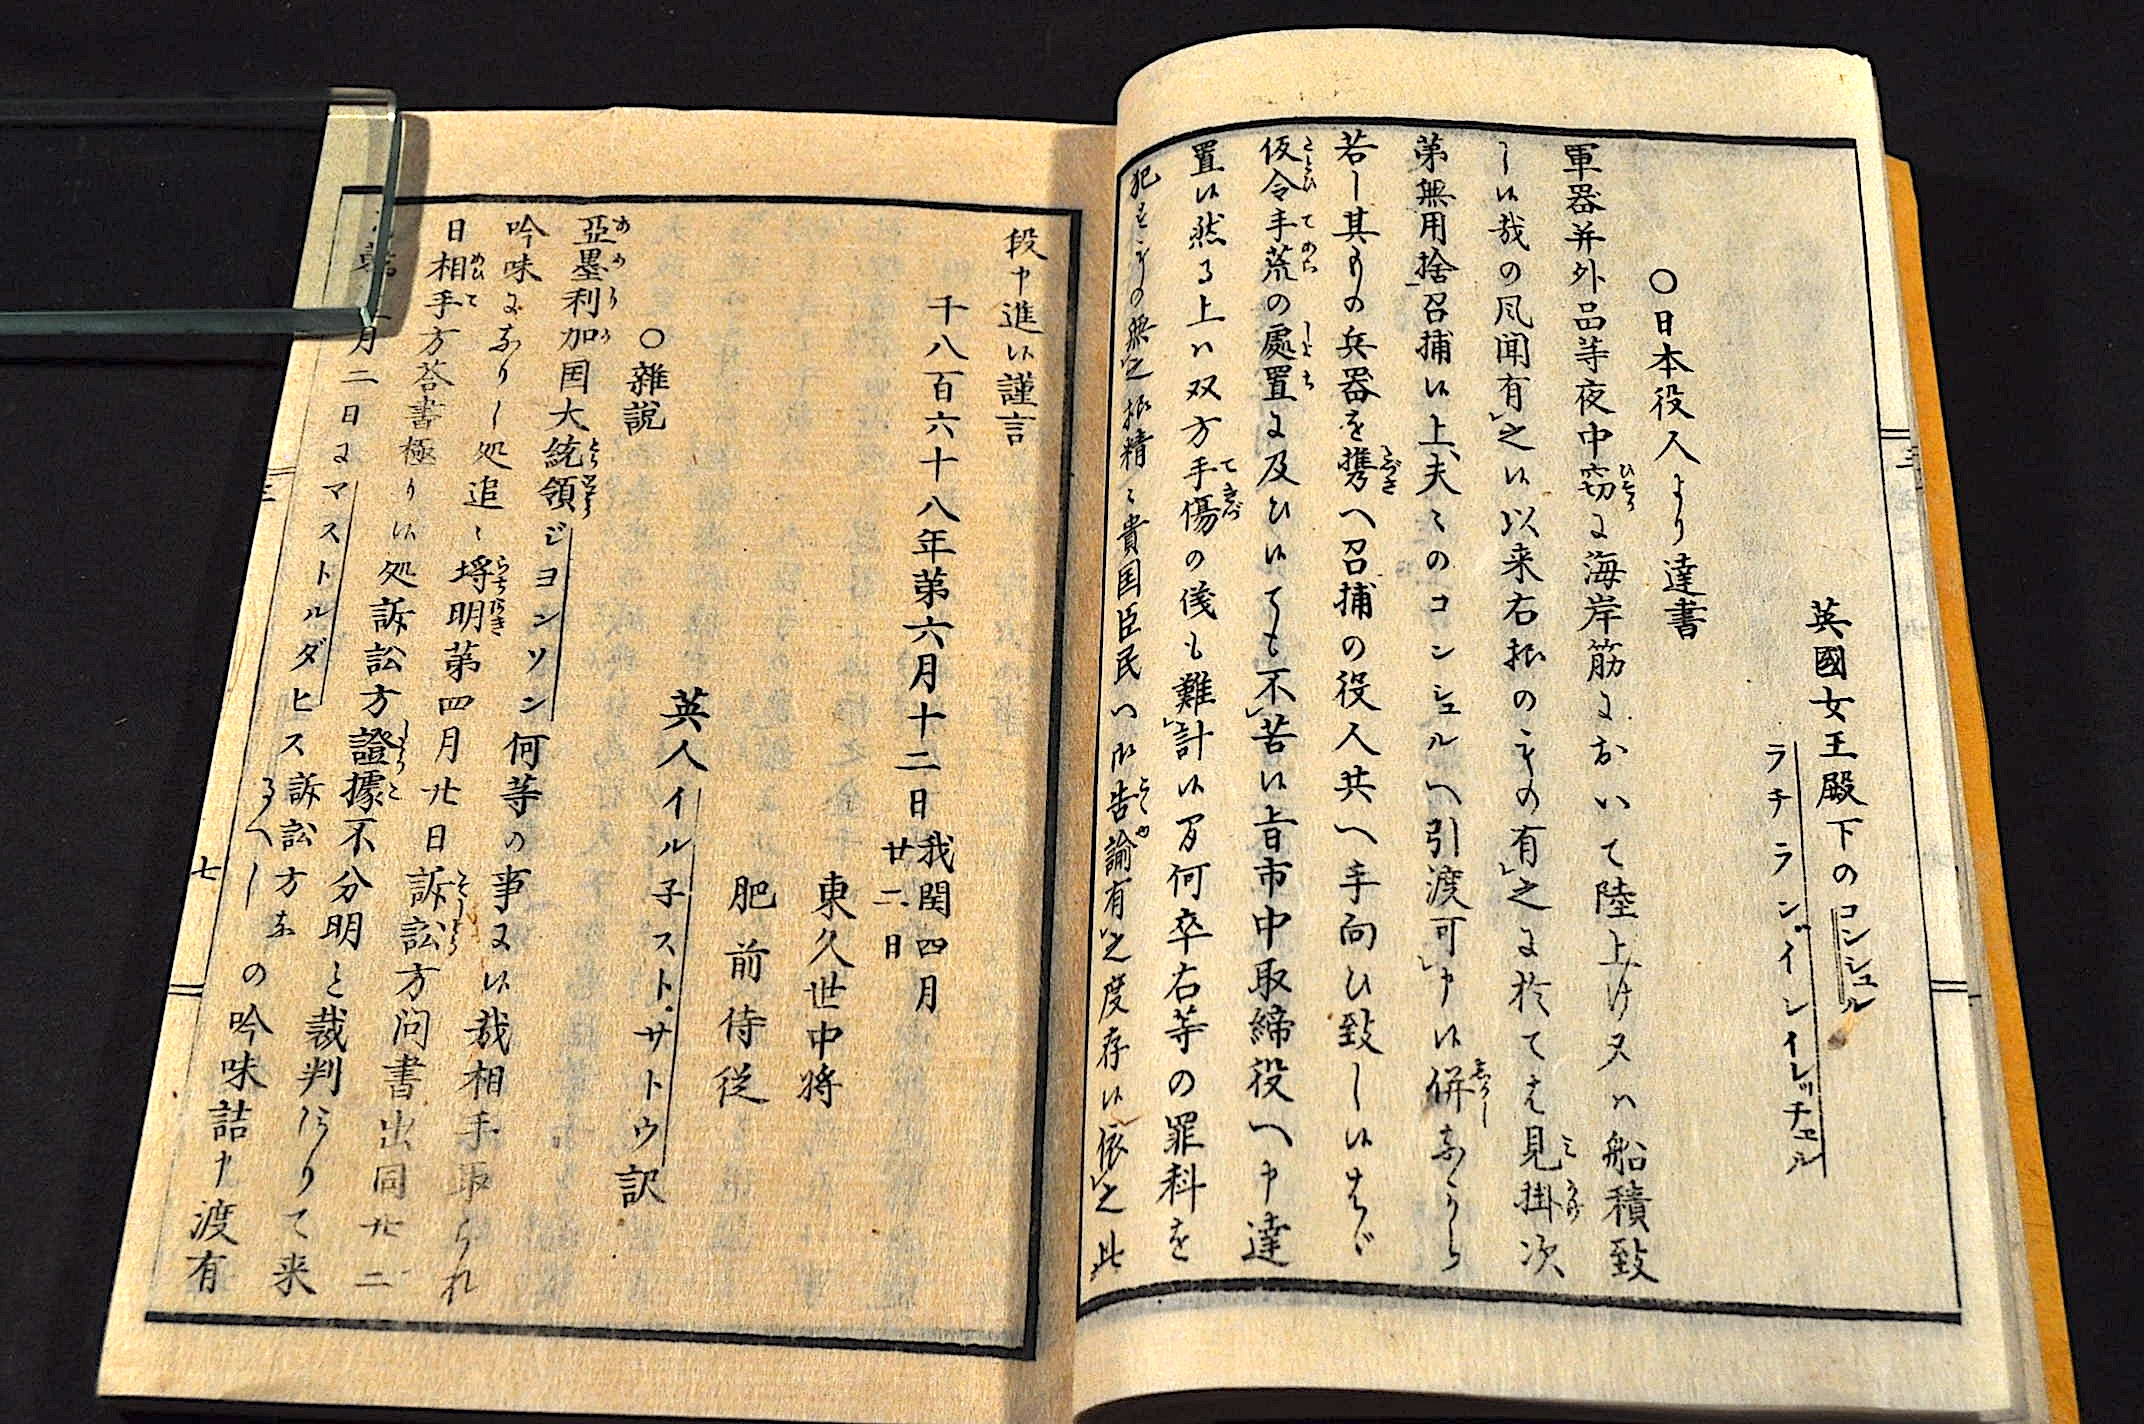 英國女王殿下のコンシュル
ラチラシヾイシイレッチェル
○日本役人より達書
軍器并外品等夜中窃に海岸筋において陸上け又ハ船積致
し候哉の風聞有之候以来右様のもの有之に於てハ見掛次
第無用捨召捕候上夫々のコンシュルへ引渡可申候併なから
若し其もの兵器を携へ召捕の役人共へ手向ひ致し候はゞ
仮令手荒の處置に及ひ候ても不苦候旨市中取締役へ申達
置候然る上ハ双方手傷の儀も難計候間何卒右等の罪科を
犯すもの無之様精々貴国臣民へ御告諭有之度存候依之此
段申進候謹言
千八百六十八年第六月十二日我閏四月廿二日
東久世中将
肥前侍従
英人イル子スト、サトウ訳
○雑説
亞墨利加国大統領ジヨンソン何等の事に候哉相手取られ
吟味になりし処追々埓明第四月廿日訴訟方问書出同廿二
日相手方答書極り候処訴訟方證據不分明と裁判ありて来
月二日にマストルダヒス訴訟方なるへしの吟味詰申渡有
三
七